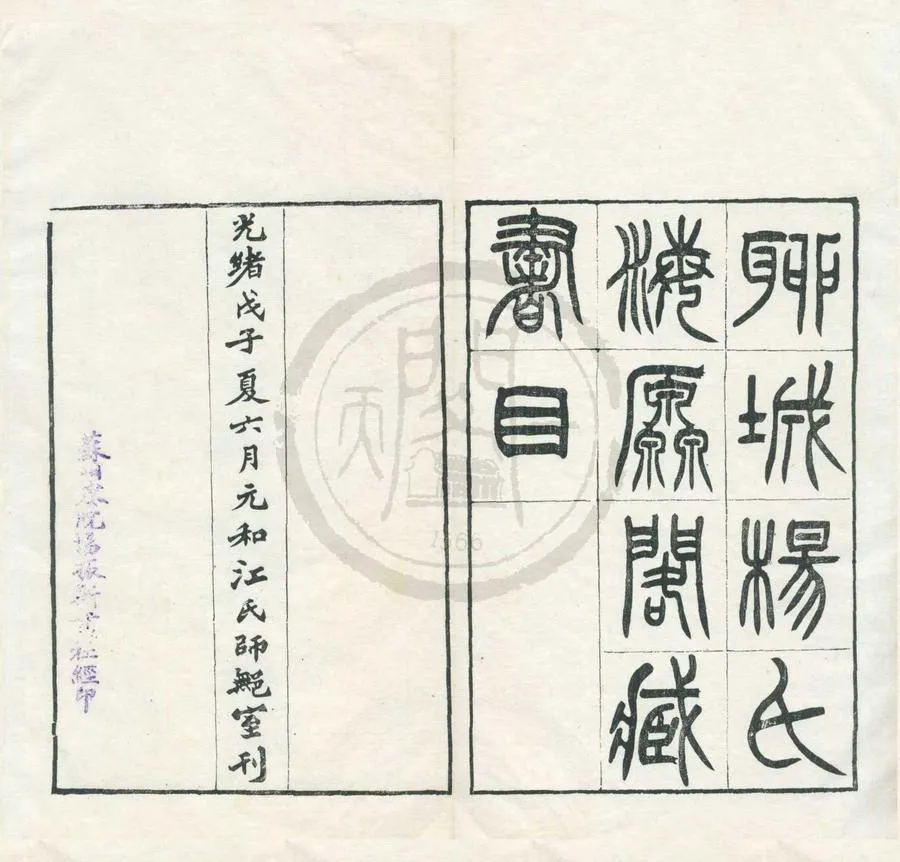 聊城楊氏
海源閣藏
書目
光緒戊子夏六月元和江氏師鄦室刊
蘇州 振新書社經印
1566